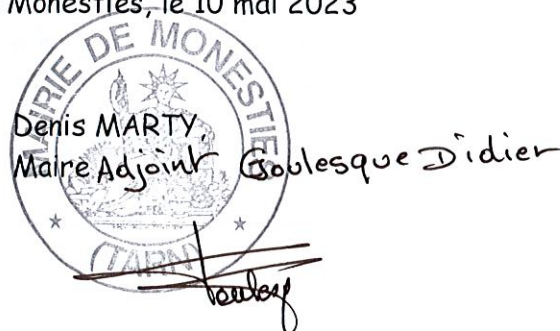 Monestiés, le 10 mai 2023
MAIRIE DE MONESTIÉS
Denis MARTY,
Maire Adjoint Goulesque Didier
★ (TARN) ★